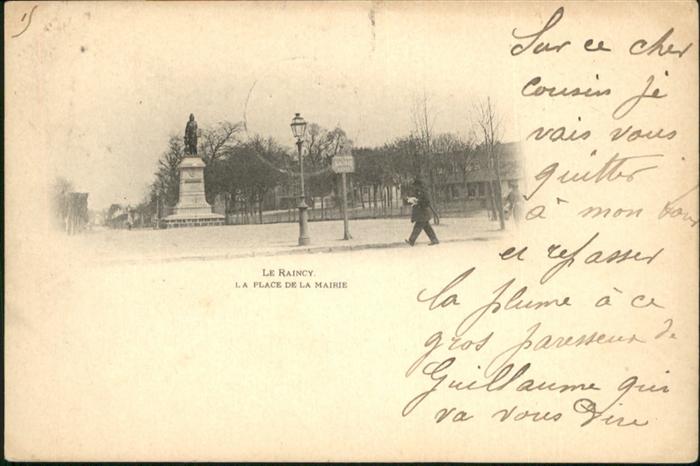 15
LE RAINCY.
LA PLACE DE LA MAIRIE
Sur ce cher
cousin je
vais vous
quitter
à mon tour
et repasser
la plume à ce
gros paresseux de
Guillaume qui
va vous dire